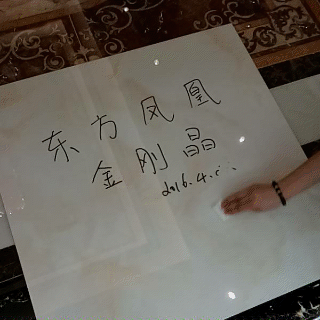 东方凤凰
金刚晶
2016.4.